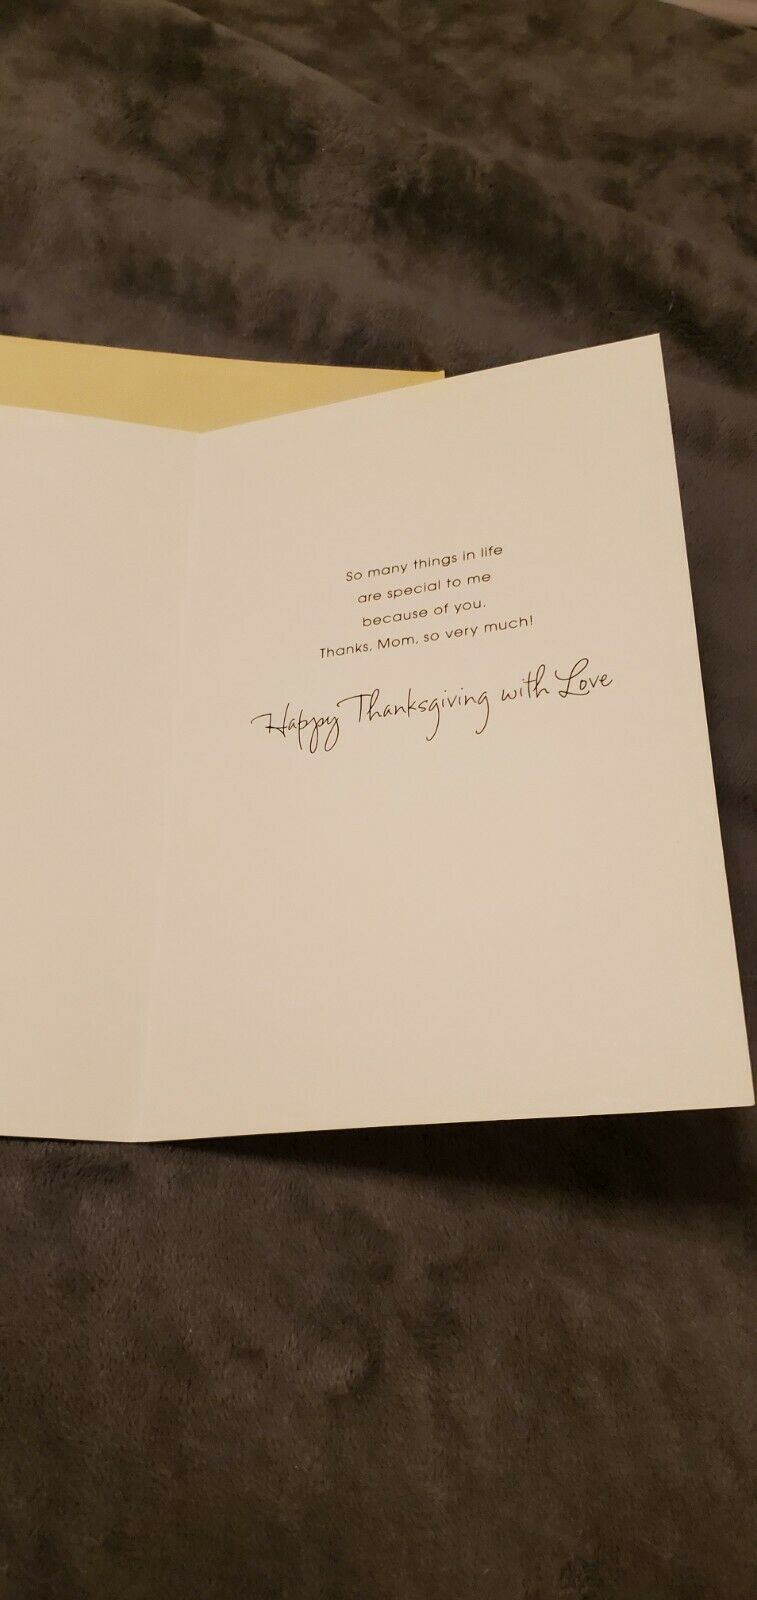 So many things in life
are special to me
because of you.
Thanks, Mom, so very much!
Happy Thanksgiving with Love